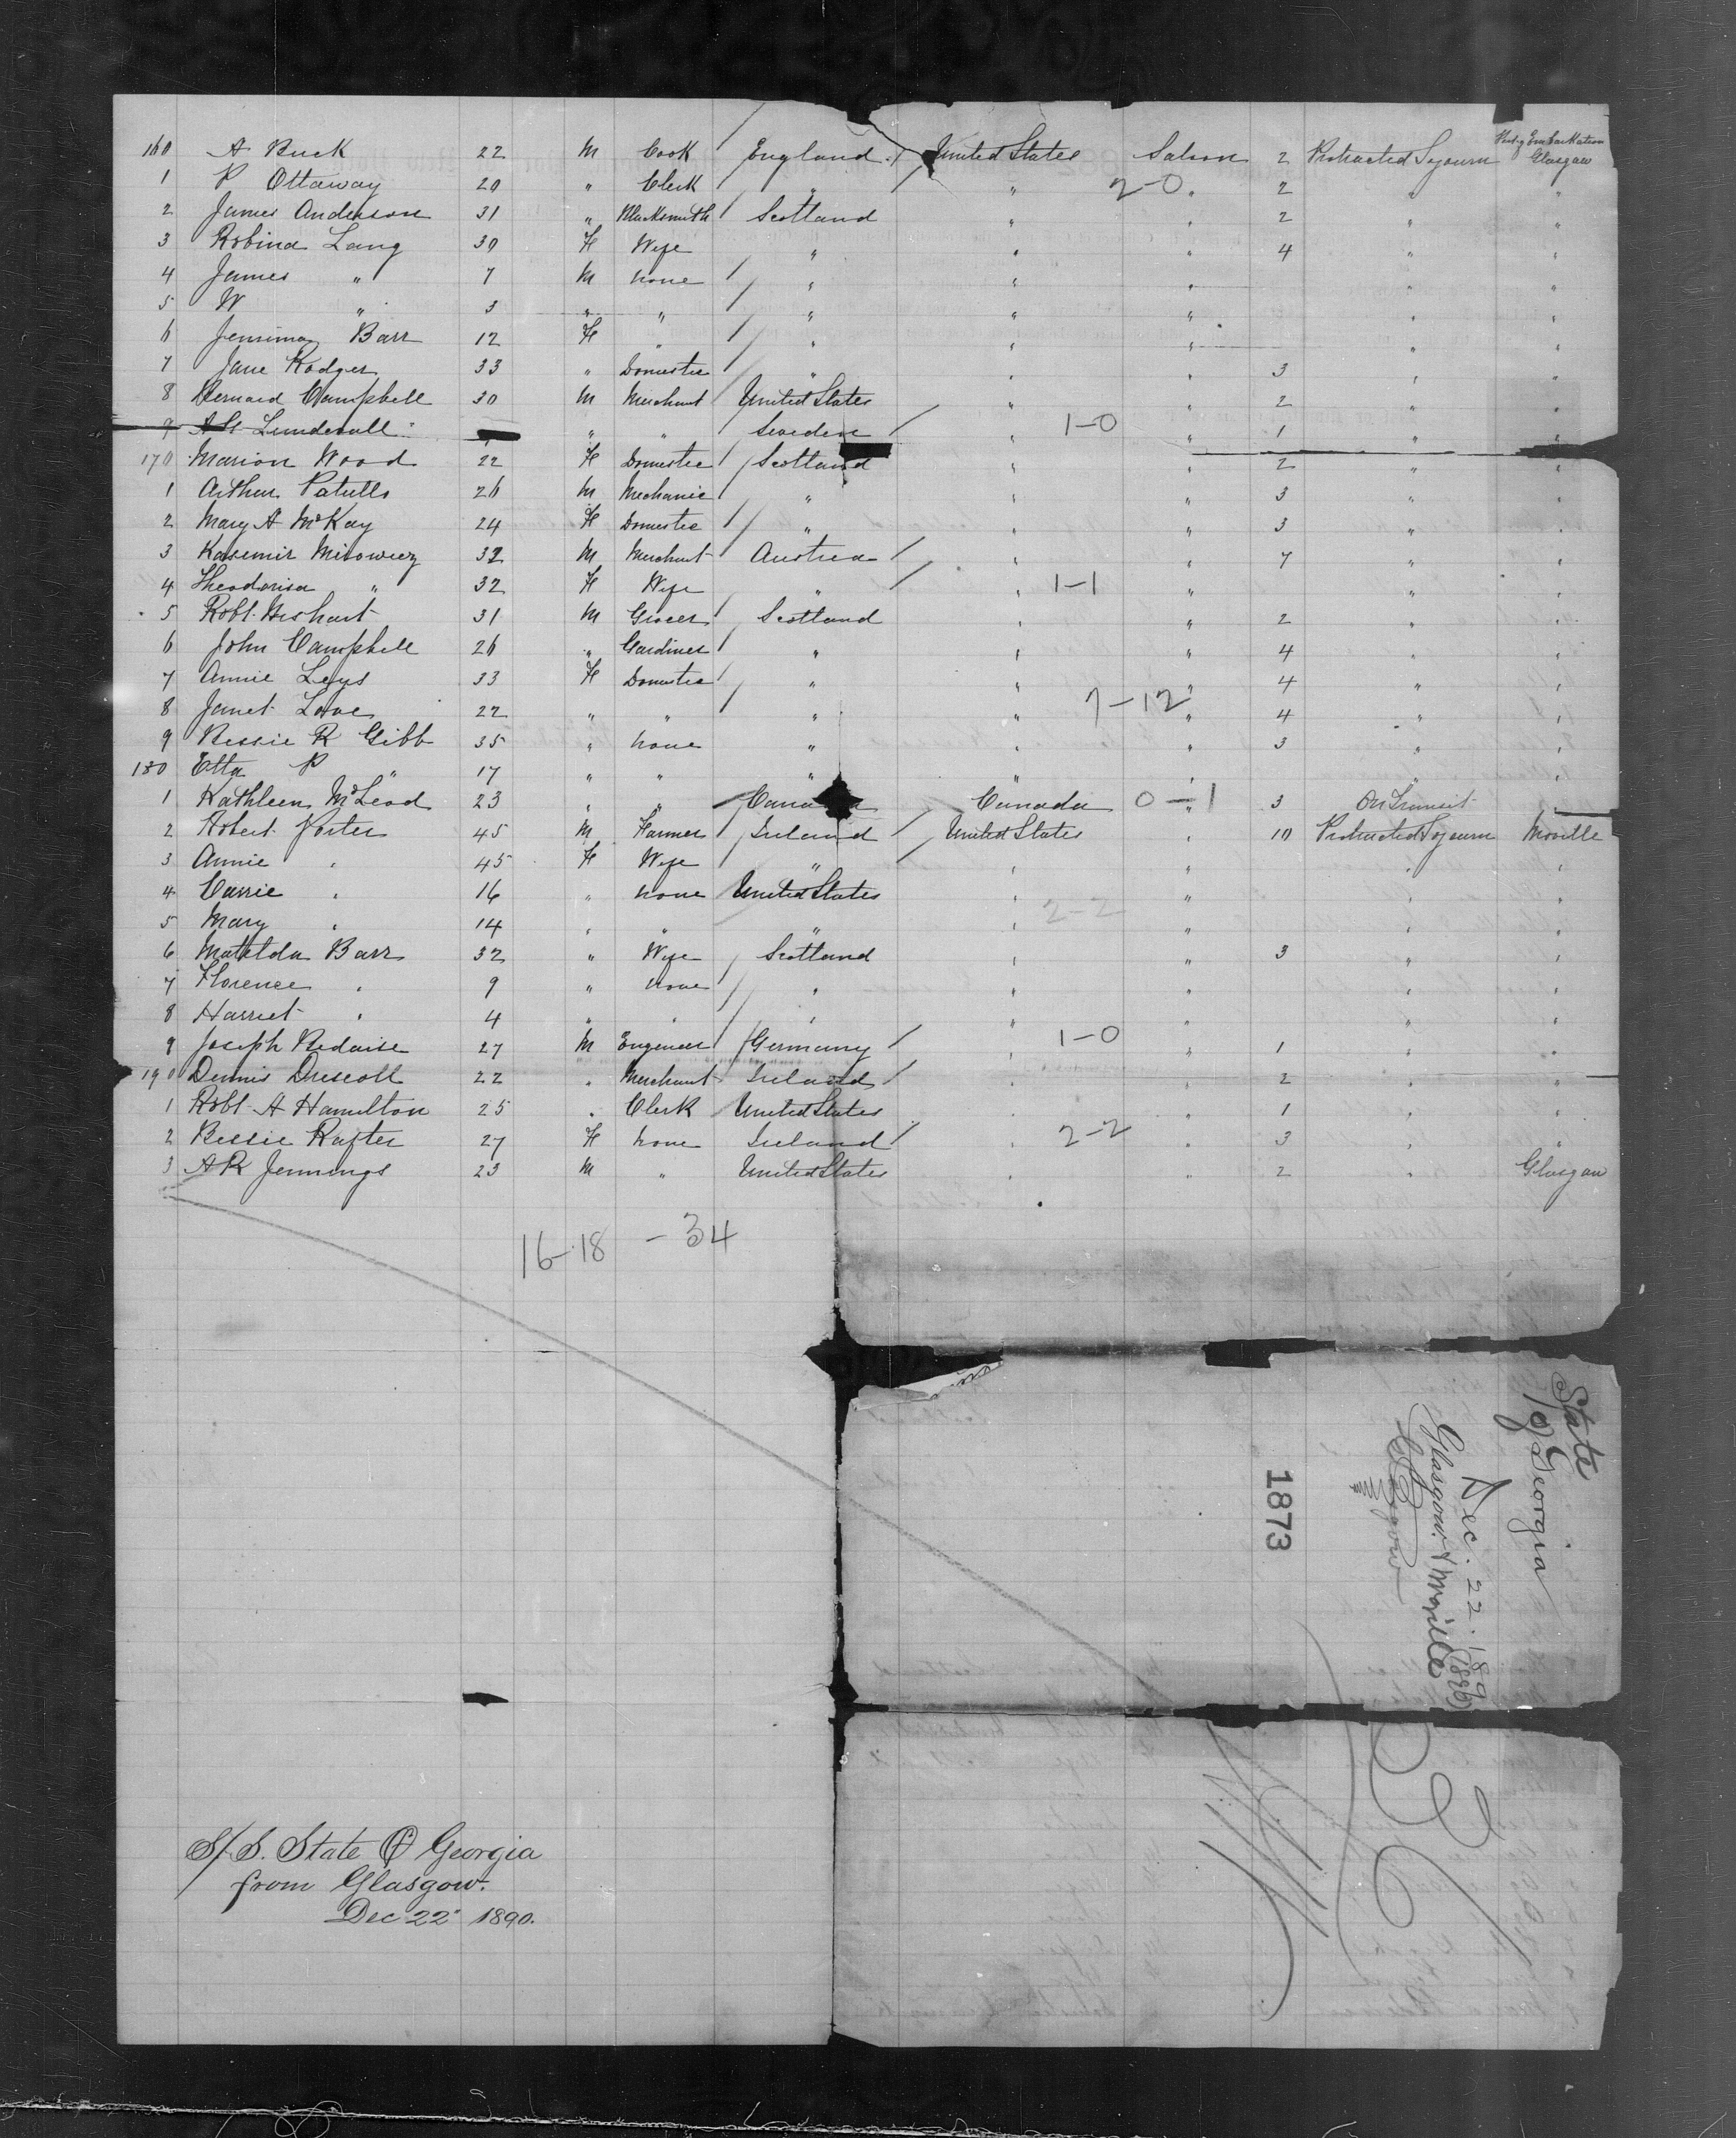 Port of Embarkation
160 A Buck 22 M Cook England United States Saloon 2 Protracted Sojourn Glasgow
1 P Ottaway 20 " Clerk " " 2-0 " 2 " "
2 James Anderson 31 " Blacksmith Scotland " " 2 " "
3 Robina Lang 30 F Wife " " " 4 " "
4 James " 7 M none " " " " "
5 W " 3 " " " " " " "
6 Jemima Barr 12 F " " " " " "
7 Jane Rodger 33 " Domestic " " " 3 " "
8 Bernard Campbell 30 M Merchant United States " " 2 " "
9 " " Sweden " 1-0 " 1 " "
170 Marion Wood 22 F Domestic Scotland " " 2 " "
1 Arthur Patullo 26 M Mechanic " " " 3 " "
2 Mary A McKay 24 F Domestic " " " 3 " "
3 Kasemir Misowicz 32 M Merchant Austria " " 7 " "
4 " 32 F Wife " " 1-1 " " "
5 Robt. Wishart 31 M Grocer Scotland " " 2 " "
6 John Campbell 26 " Gardiner " " " 4 " "
7 Annie Leys 33 F Domestic " " " 4 " "
8 Janet Love 22 " " " " 7-12 " 4 " "
9 Bessie R Gibb 35 " none " " " 3 " "
180 Etta P " 17 " " " " " " "
1 Kathleen McLeod 23 " " Canada Canada 0-1 " 3 In Transit
2 Robert Porter 45 M Farmer Ireland United States " 10 Protracted Sojourn Moville
3 Annie " 45 F Wife " " " " "
4 Carrie " 16 " none United States " " " "
5 Mary " 14 " " " " 2-2 " " "
6 Matilda Barr 32 " Wife Scotland " " 3 " "
7 Florence " 9 " none " " " " "
8 Harriet " 4 " " " " " " "
9 Joseph 27 M Engineer Germany " 1-0 " 1 " "
190 Dennis Driscoll 22 " Merchant Ireland " " 2 " "
1 Robt. A Hamilton 25 " Clerk United States " " 1 " "
2 Bessie Rafter 27 F none Ireland " 2-2 " 3 " "
3 A R Jennings 23 M " United States " " 2 " Glasgow
16-18 - 34
State of Georgia
Dec. 22. 1890
Glasgow & Moville
Glasgow
1873
S/S. State Of Georgia
from Glasgow.
Dec 22" 1890.